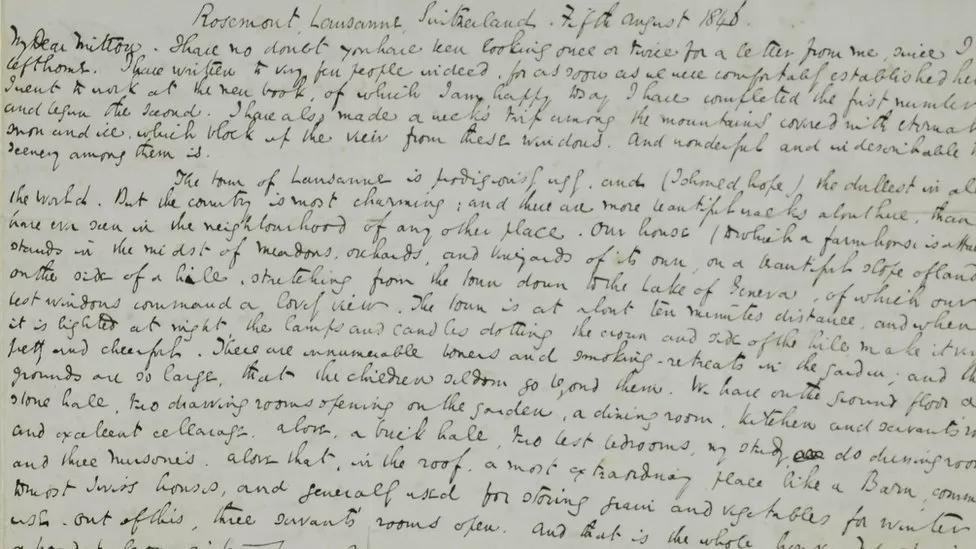 Rosemont, Lausanne, Switzerland. Fifth August 1846.
My Dear Mitton. I have no doubt you have been looking once or twice for a letter from me, since I
left home. I have written to very few people indeed, for as soon as we were comfortably established he
I went to work at the new book, of which I am happy today I have completed the first number
and begun the second. I have also made a week's trip among the mountains covered with eternal
snow and ice, which block up the view from these windows. And wonderful and indescribable
scenery among them is.
The town of Lausanne is prodigiously ugly, and (I should hope) the dullest in al
the World. But the country is most charming; and there are more beautiful walks about here, than
have ever seen in the neighbourhood of any other place. Our house (to which a farmhouse is atta
stands in the midst of meadows, orchards, and vineyards of its own, on a beautiful slope of land
on the side of a hill, stretching from the town down to the Lake of Geneva, of which our
best windows command a lovely view. The town is at about ten minutes distance, and when
it is lighted at night the lamps and candles dotting the crown and side of the hill make it ve
pretty and cheerful. There are innumerable bowers and smoking-retreats in the garden; and th
grounds are so large, that the children seldom go beyond them. We have on the ground floor a
stone hall, two drawing rooms opening on the garden, a dining room, kitchen and servants'
and excellent cellarage. above, a brick hall, two best bedrooms, my study do dressing roo
and three nurseries. above that, in the roof, a most extraordinary place like a Barn, comm
to most Swiss houses, and generally used for storing grain and vegetables for winter
use. out of this, three servants' rooms open. And that is the whole